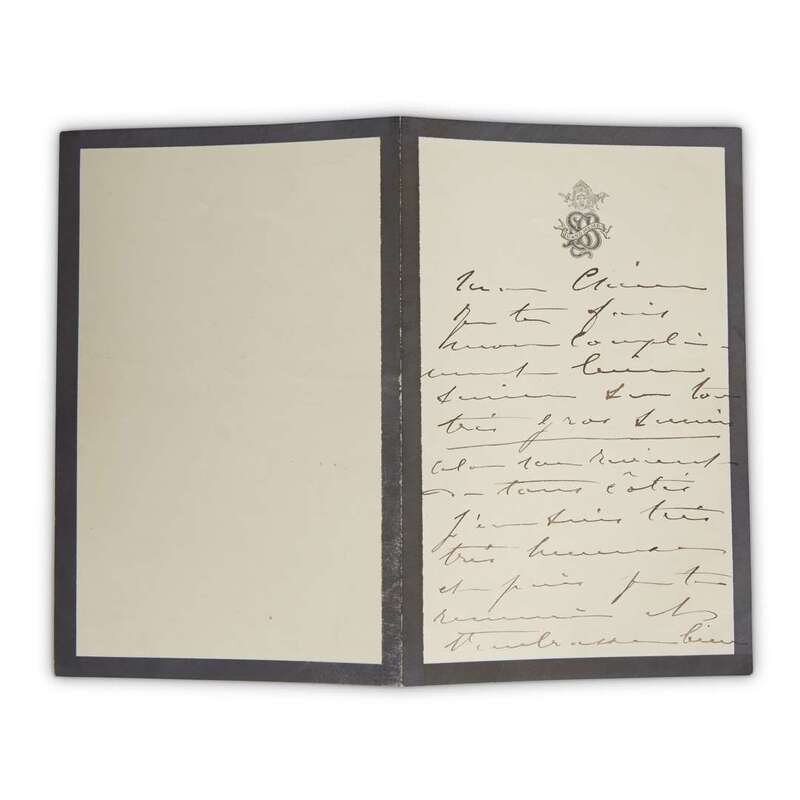 mon Chéri
je te fais
mon compli-
ment bien
sincère sur ton
très gros succès
cela me revient
de tous côtés
j'en suis très
très heureuse
et puis je te
remercie et
t'embrasse bien